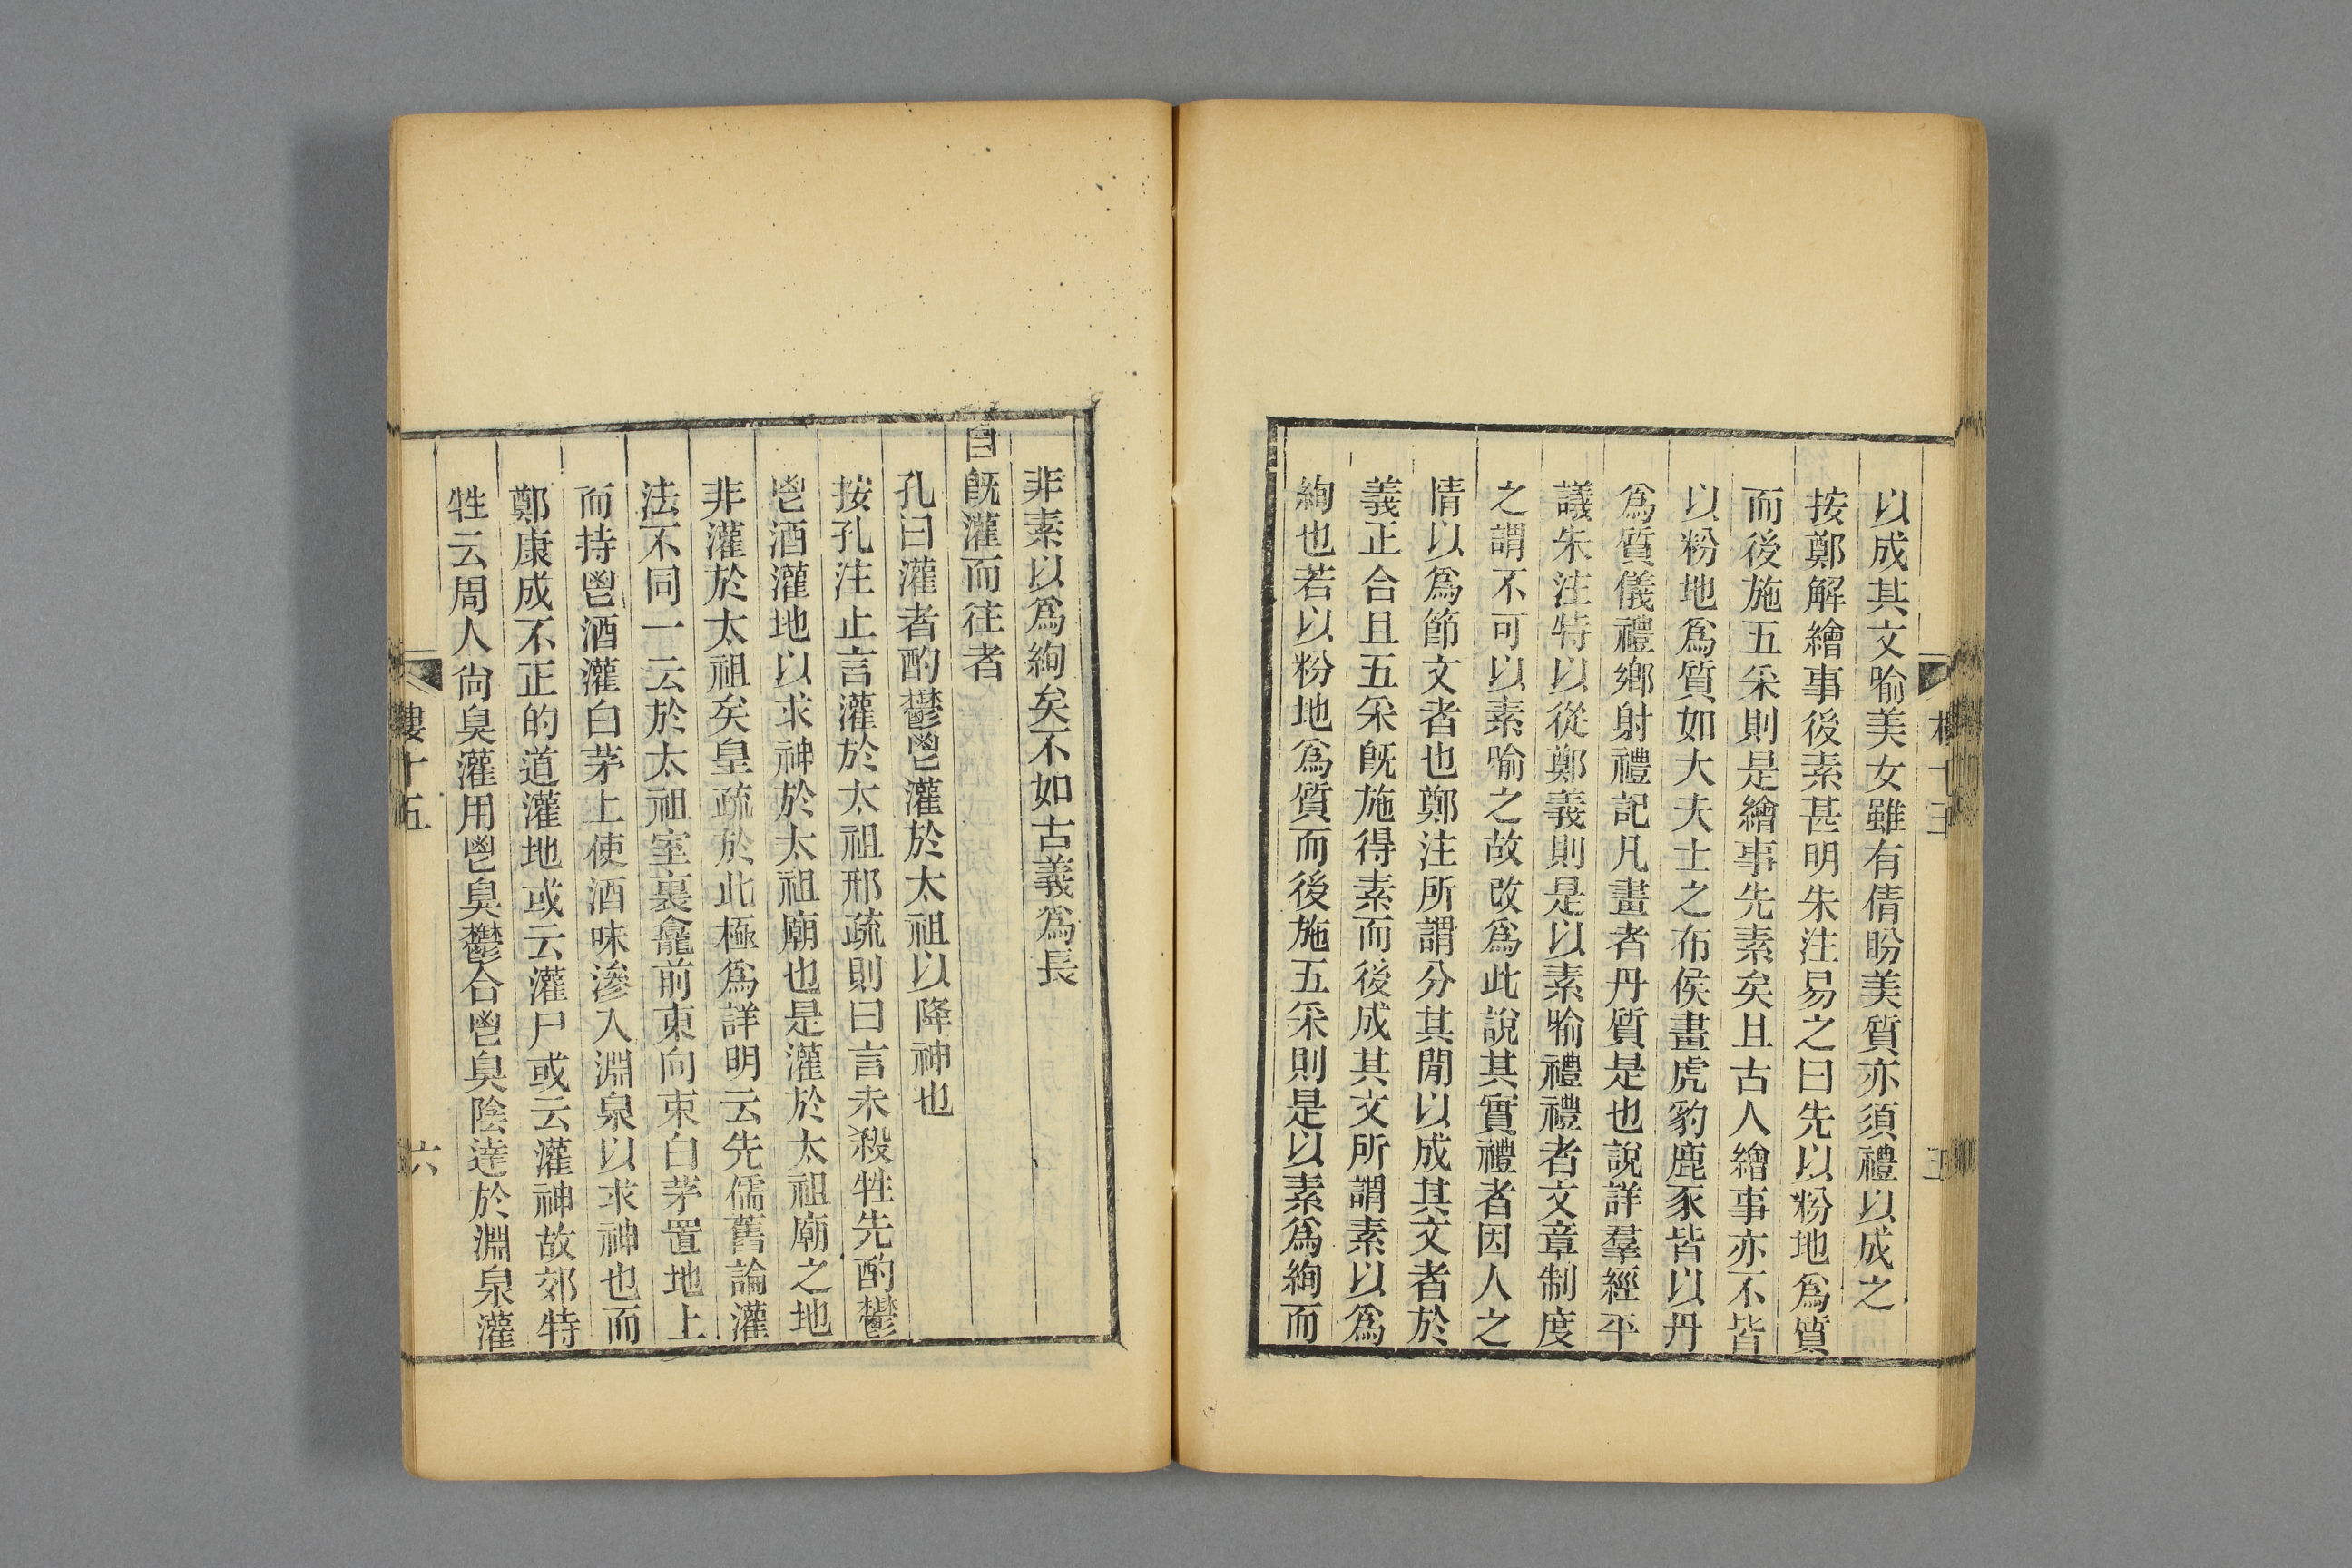 以成其文喻美女雖有倩盼美質亦須禮以成之
按鄭解繪事後素甚明朱注易之曰先以粉地爲質
而後施五采則是繪事先素矣且古人繪事亦不皆
以粉地爲質如大夫士之布侯畫虎豹鹿豕皆以丹
爲質儀禮鄉射禮記凡畫者丹質是也說詳羣經平
議朱注特以從鄭義則是以素喻禮禮者文章制度
之謂不可以素喻之故改爲此說其實禮者因人之
情以爲節文者也鄭注所謂分其閒以成其文者於
義正合且五采旣施得素而後成其文所謂素以爲
絢也若以粉地爲質而後施五采則是以素爲絢而
非素以爲絢矣不如古義爲長
自旣灌而往者
孔曰灌者酌鬱鬯灌於太祖以降神也
按孔注止言灌於太祖邢疏則曰言未殺牲先酌鬱
鬯酒灌地以求神於太祖廟也是灌於太祖廟之地
非灌於太祖矣皇疏於此極爲詳明云先儒舊論灌
法不同一云於太祖室裏龕前東向束白茅置地上
而持鬯酒灌白茅上使酒味滲入淵泉以求神也而
鄭康成不正的道灌地或云灌尸或云灌神故郊特
牲云周人尙臭灌用鬯臭鬱合鬯臭陰達於淵泉灌
樓十五
六